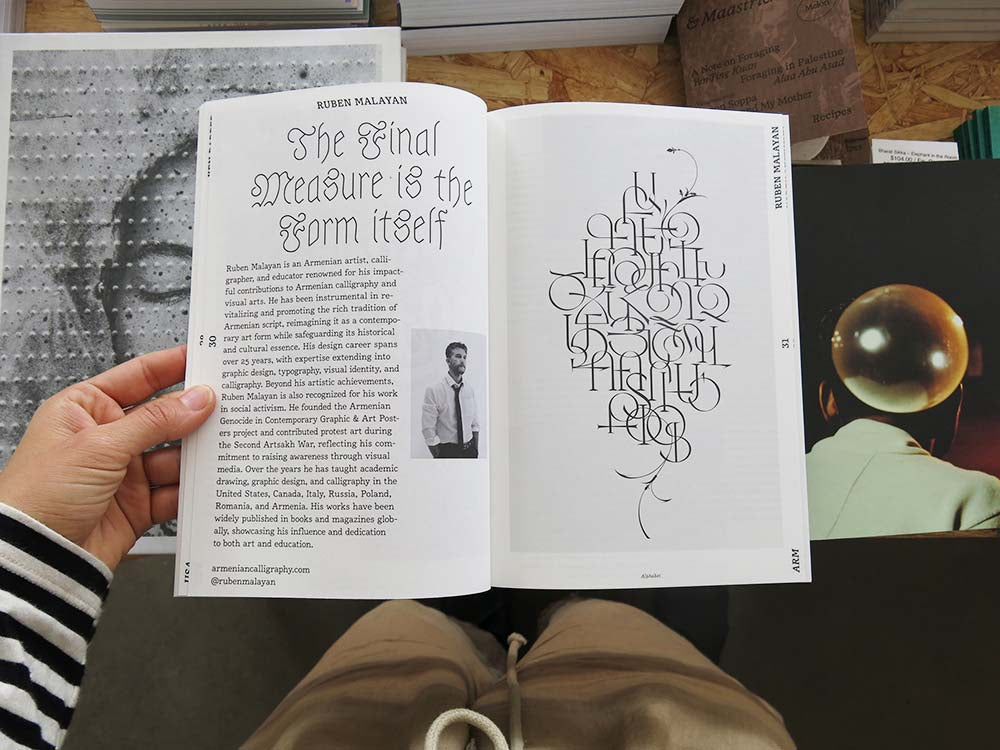 & Maastric
A Note on Foraging
Foraging in Palestine
Alaa Abu Asad
Soppa
My Mother
Recipes
RUBEN MALAYAN
The Final
Measure is the
Form itself
Ruben Malayan is an Armenian artist, calli-
grapher, and educator renowned for his impact-
ful contributions to Armenian calligraphy and
visual arts. He has been instrumental in re-
vitalizing and promoting the rich tradition of
Armenian script, reimagining it as a contempo-
rary art form while safeguarding its historical
and cultural essence. His design career spans
over 25 years, with expertise extending into
graphic design, typography, visual identity, and
calligraphy. Beyond his artistic achievements,
Ruben Malayan is also recognized for his work
in social activism. He founded the Armenian
Genocide in Contemporary Graphic & Art Post-
ers project and contributed protest art during
the Second Artsakh War, reflecting his com-
mitment to raising awareness through visual
media. Over the years he has taught academic
drawing, graphic design, and calligraphy in the
United States, Canada, Italy, Russia, Poland,
Romania, and Armenia. His works have been
widely published in books and magazines glob-
ally, showcasing his influence and dedication
to both art and education.
armeniancalligraphy.com
@rubenmalayan
30
USA
RUBEN MALAYAN
31
ARM
Alphabet